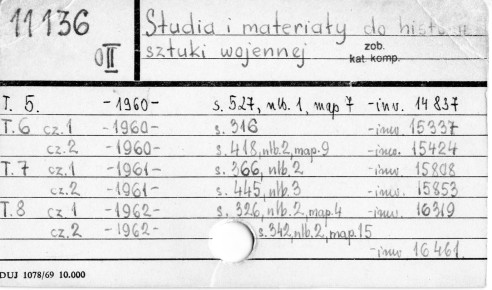 11136
OII
Studia i materiały do historii
sztuki wojennej
zob.
kat. komp.
T. 5. -1960- s. 527, nlb. 1, map 7 -inw. 14837
T. 6 cz. 1 -1960- s. 316 -inw. 15337
cz. 2 -1960- s. 418, nlb. 2, map. 9 -inw. 15424
T. 7 cz. 1 -1961- s. 366, nlb. 2 -inw. 15808
cz. 2 -1961- s. 445, nlb. 3 -inw. 15853
T. 8 cz. 1 -1962- s. 326, nlb. 2, map. 4 -inw. 16319
cz. 2 -1962- s. 342, nlb. 2, map. 15
-inw 16461.
DUJ 1078/69 10.000